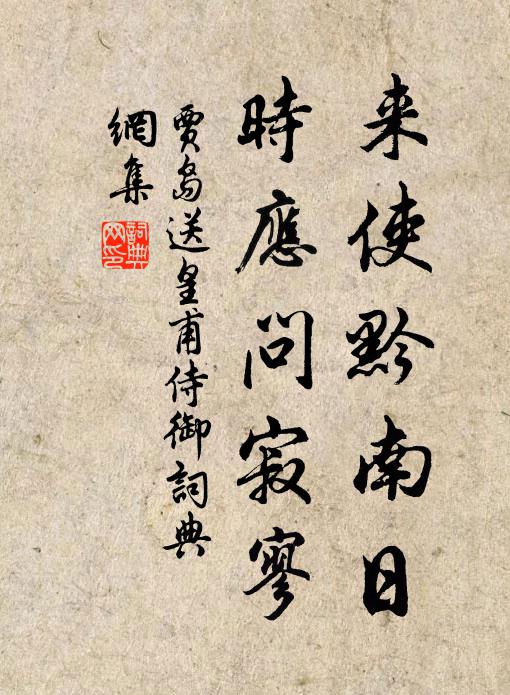 来使黔南日
時應問寂寥
賈島送皇甫侍御詞典
網集
詞典
网印